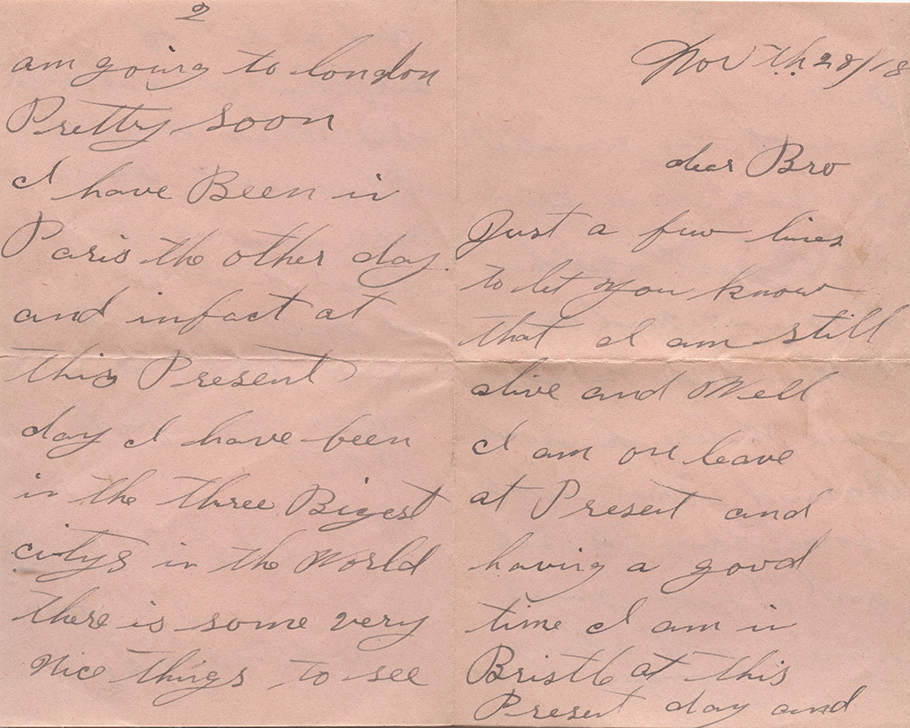 Nov th. 28/18
dear Bro
Just a few lines
to let you know
that I am still
alive and Well
I am on leave
at Present and
having a good
time I am in
Bristle at this
Present day and
2
am going to london
Pretty soon
I have Been in
Paris the other day.
and infact at
this Present
day I have been
in the three Bigest
citys in the World
there is some very
Nice things to see